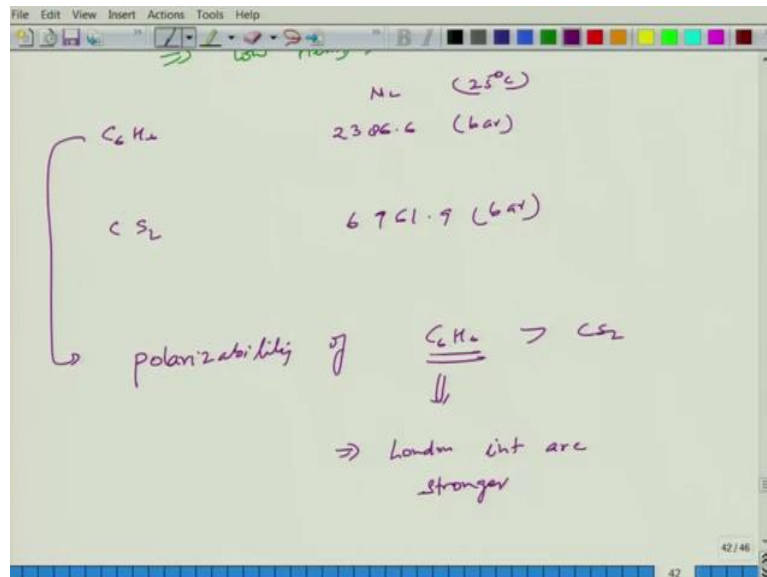 File Edit View Insert Actions Tools Help
⇒ Low
(25°C)
C6H6 2386.6 (bar)
CS2 6761.9 (bar)
polarizability of C6H6 > CS2
⇒ London int are
stronger
42/46
42